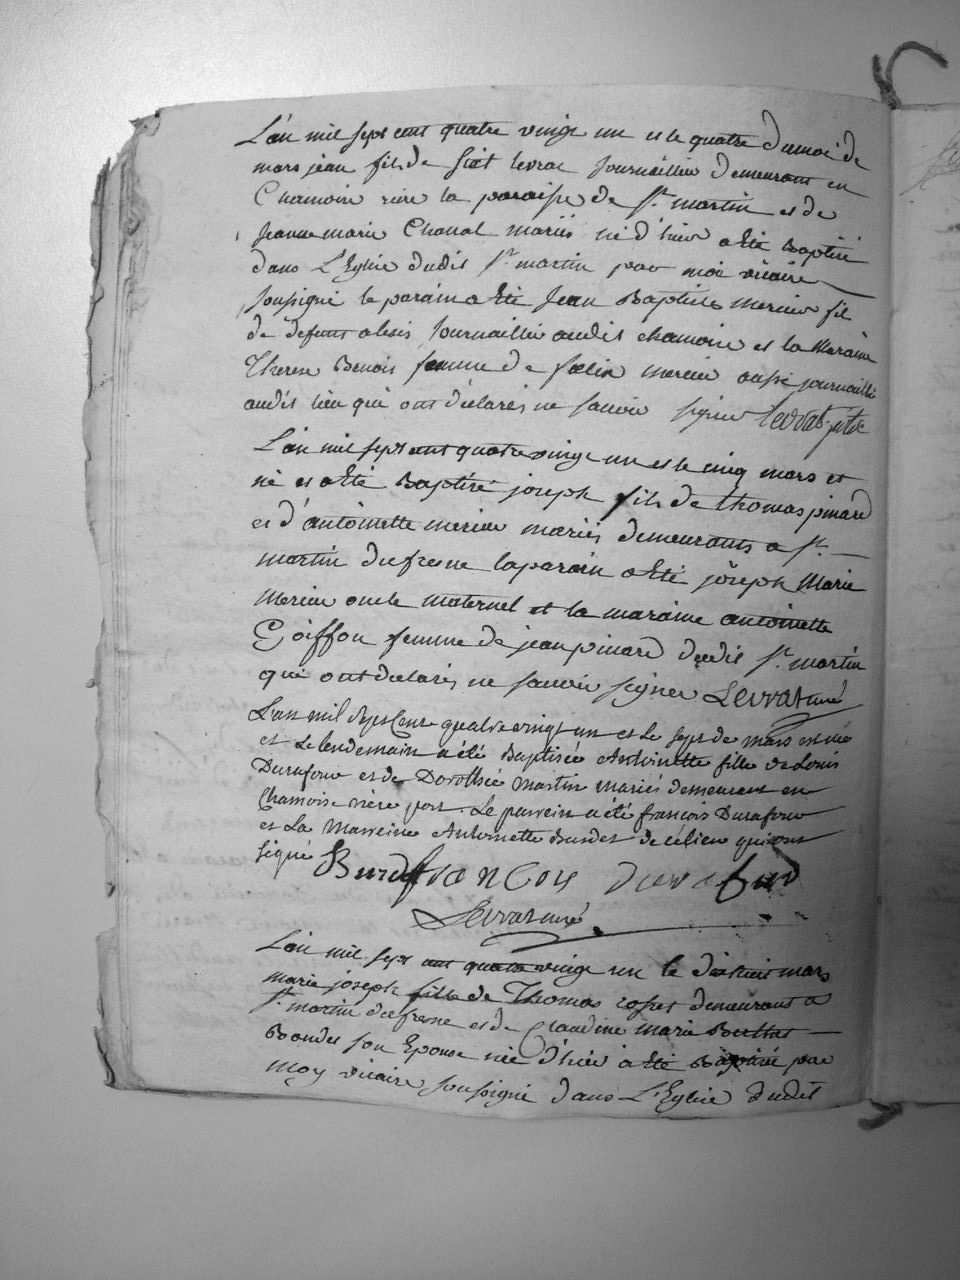 L'an mil sept cent quatre vingt un et le quatre du moi de
mars jean fils de levrat journaillier demeurant en
Chamoise riere la paroisse de St. martin et de
Jeanne marie Chanal mariés né d'hier a eté Baptisé
dans L'Eglise dudit St martin par moi vicaire
soussigné le parain a eté Jean Baptiste mercier fil
de defunt alexis journaillier audit chamoise et la Maraine
Therese Benoit femme de foelix mercier aussi journaillié
audit lieu qui ont déclarés ne savoir signer Levrat
L'an mil sept cent quatre vingt un et le cinq mars est
né et a eté Baptisé joseph fils de thomas pinard
et d'antoinette mercier mariés demeurants a St.
martin du fresne le parain a eté joseph Marie
Mercier oncle maternel et la maraine antoinette
Goiffon femme de jean pinard dudit St. martin
qui ont déclarés ne savoir signer Levrat curé
L'an mil Sept Cent quatre vingt un et Le Sept de Mars est née
et Le lendemain a été Baptisée Antoinette fille de Louis
Durafour et de Dorothée Martin mariés demeurant en
Chamoise rière port. Le parrein a été francois Durafour
et La Marreine Antoinette Burdet de ce lieu qui ont
signé Burdet francois durafour
Levrat curé
L'an mil sept cent quatre vingt un le dixhuit mars
marie joseph fille de Thomas demeurant a
St. martin du fresne et de Claudine marie
son Epouse née d'hier a eté Baptisé par
moy vicaire soussigné dans L'Eglise dudit